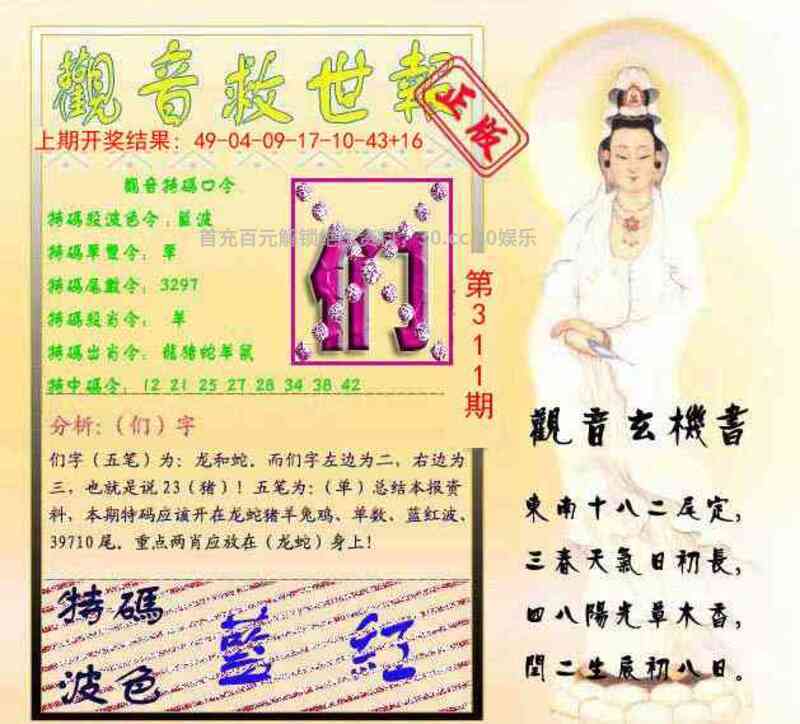 觀音救世報
正版
上期开奖结果：49-04-09-17-10-43+16
觀音特碼口令
特碼段波色令：藍波
特碼單雙令：單
特碼尾數令：3297
特碼段肖令：羊
特碼出肖令：龍猪蛇羊鼠
特中碼令：12 21 25 27 28 34 38 42
们
第311期
分析：（们）字
们字（五笔）为：龙和蛇．而们字左边为二，右边为
三，也就是说23（猪）！五笔为：（单）总结本报资
料，本期特码应该开在龙蛇猪羊兔鸡、单数．蓝红波、
39710尾．重点两肖应放在（龙蛇）身上！
特碼
波色
藍 紅
觀音玄機書
東南十八二尾定，
三春天氣日初長，
四八陽光草木香，
閏二生辰初八日。